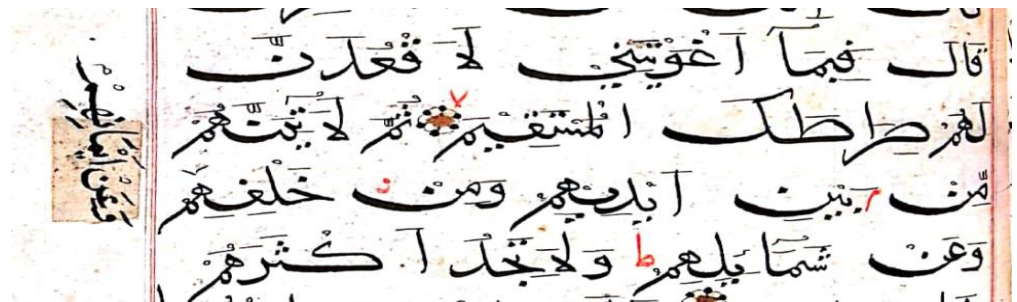 قَالَ فَبِمَآ اَغْوَيْتَنِيْ لَاَ قْعُدَنَّ
لَهُمْ صِرَاطَكَ الْمُسْتَقِيْمَ ۷ ثُمَّ لَاٰتِيَنَّهُمْ
مِّنْ بَيْنِ اَيْدِيْهِمْ وَمِنْ خَلْفِهِمْ
وَعَنْ شَمَآئِلِهِمْ ط وَلَا تَجِدُ اَكْثَرَهُمْ
وَعَنْ اَيْمَانِهِمْ